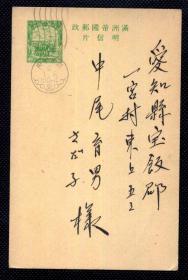 滿洲帝國郵政
明信片
愛知縣宝飯郡
一宮村東上五三
中尾育男樣